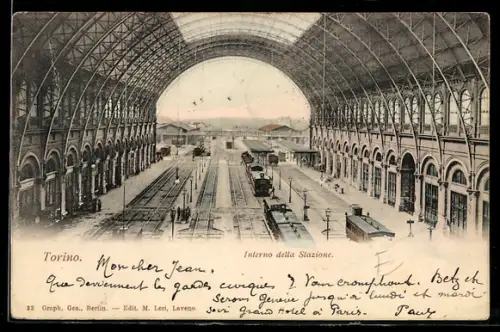 Torino.
Interno della Stazione.
Mon cher Jean.
Que deviennent les gardes civiques ? Vam cromphout. Betz et
Serons Genève jusqu'a lundi et mardi
soir Grand Hotel à Paris. Pauz
22 Graph. Ges., Berlin. — Edit. M. Leri, Laveno.